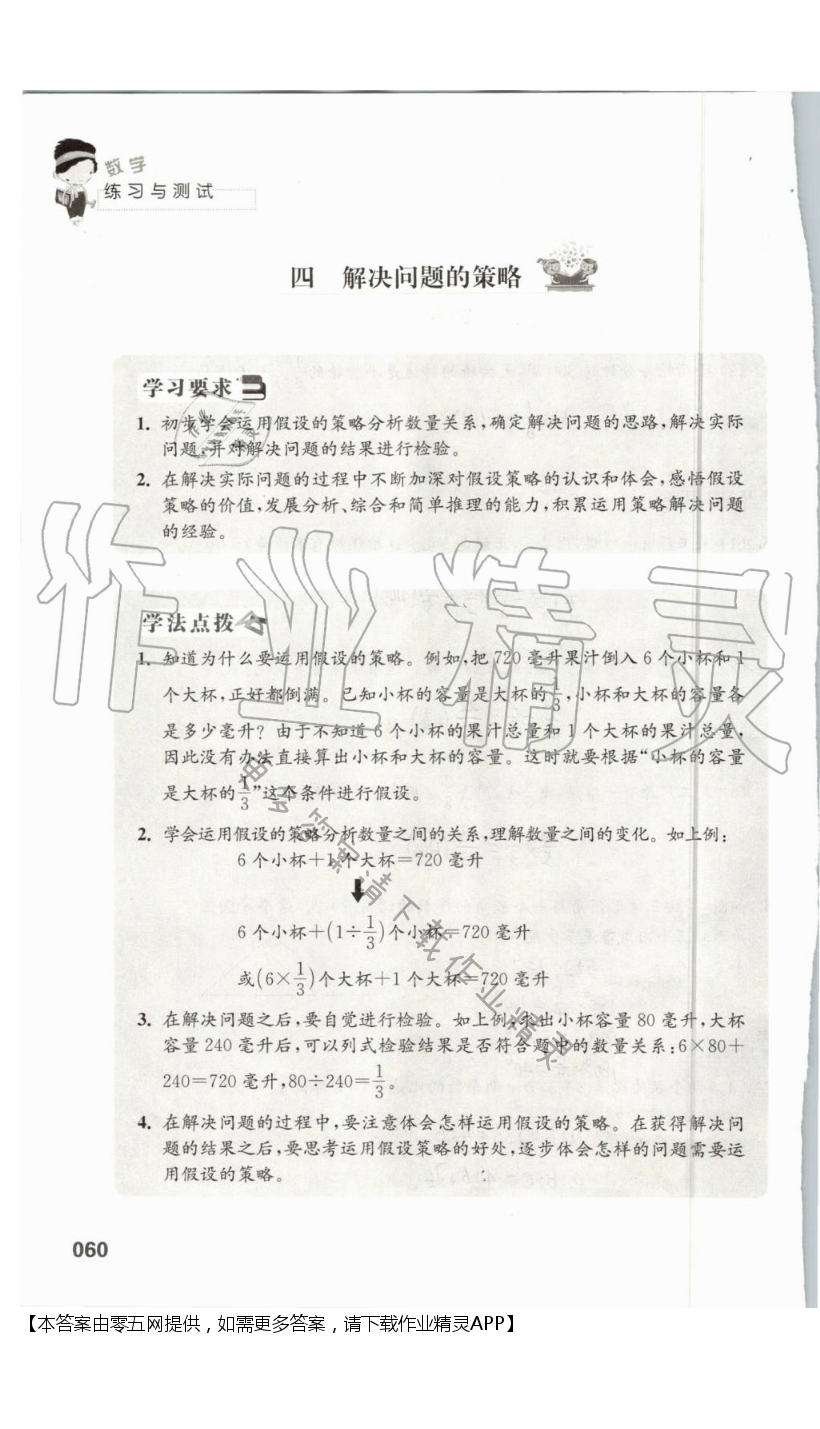 数学
练习与测试
四 解决问题的策略
学习要求
1. 初步学会运用假设的策略分析数量关系,确定解决问题的思路,解决实际
问题,并对解决问题的结果进行检验。
2. 在解决实际问题的过程中不断加深对假设策略的认识和体会,感悟假设
策略的价值,发展分析、综合和简单推理的能力,积累运用策略解决问题
的经验。
学法点拨
1. 知道为什么要运用假设的策略。例如,把 720 毫升果汁倒入 6 个小杯和 1
个大杯,正好都倒满。已知小杯的容量是大杯的1/3,小杯和大杯的容量各
是多少毫升? 由于不知道 6 个小杯的果汁总量和 1 个大杯的果汁总量,
因此没有办法直接算出小杯和大杯的容量。这时就要根据“小杯的容量
是大杯的1/3”这个条件进行假设。
2. 学会运用假设的策略分析数量之间的关系,理解数量之间的变化。如上例:
6 个小杯+1 个大杯=720 毫升
6 个小杯+(1÷1/3)个小杯=720 毫升
或(6×1/3)个大杯+1 个大杯=720 毫升
3. 在解决问题之后,要自觉进行检验。如上例,求出小杯容量 80 毫升,大杯
容量 240 毫升后,可以列式检验结果是否符合题中的数量关系:6×80+
240=720 毫升,80÷240=1/3。
4. 在解决问题的过程中,要注意体会怎样运用假设的策略。在获得解决问
题的结果之后,要思考运用假设策略的好处,逐步体会怎样的问题需要运
用假设的策略。
060
作业精灵
更多答案请下载作业精灵
【本答案由零五网提供，如需更多答案，请下载作业精灵APP】